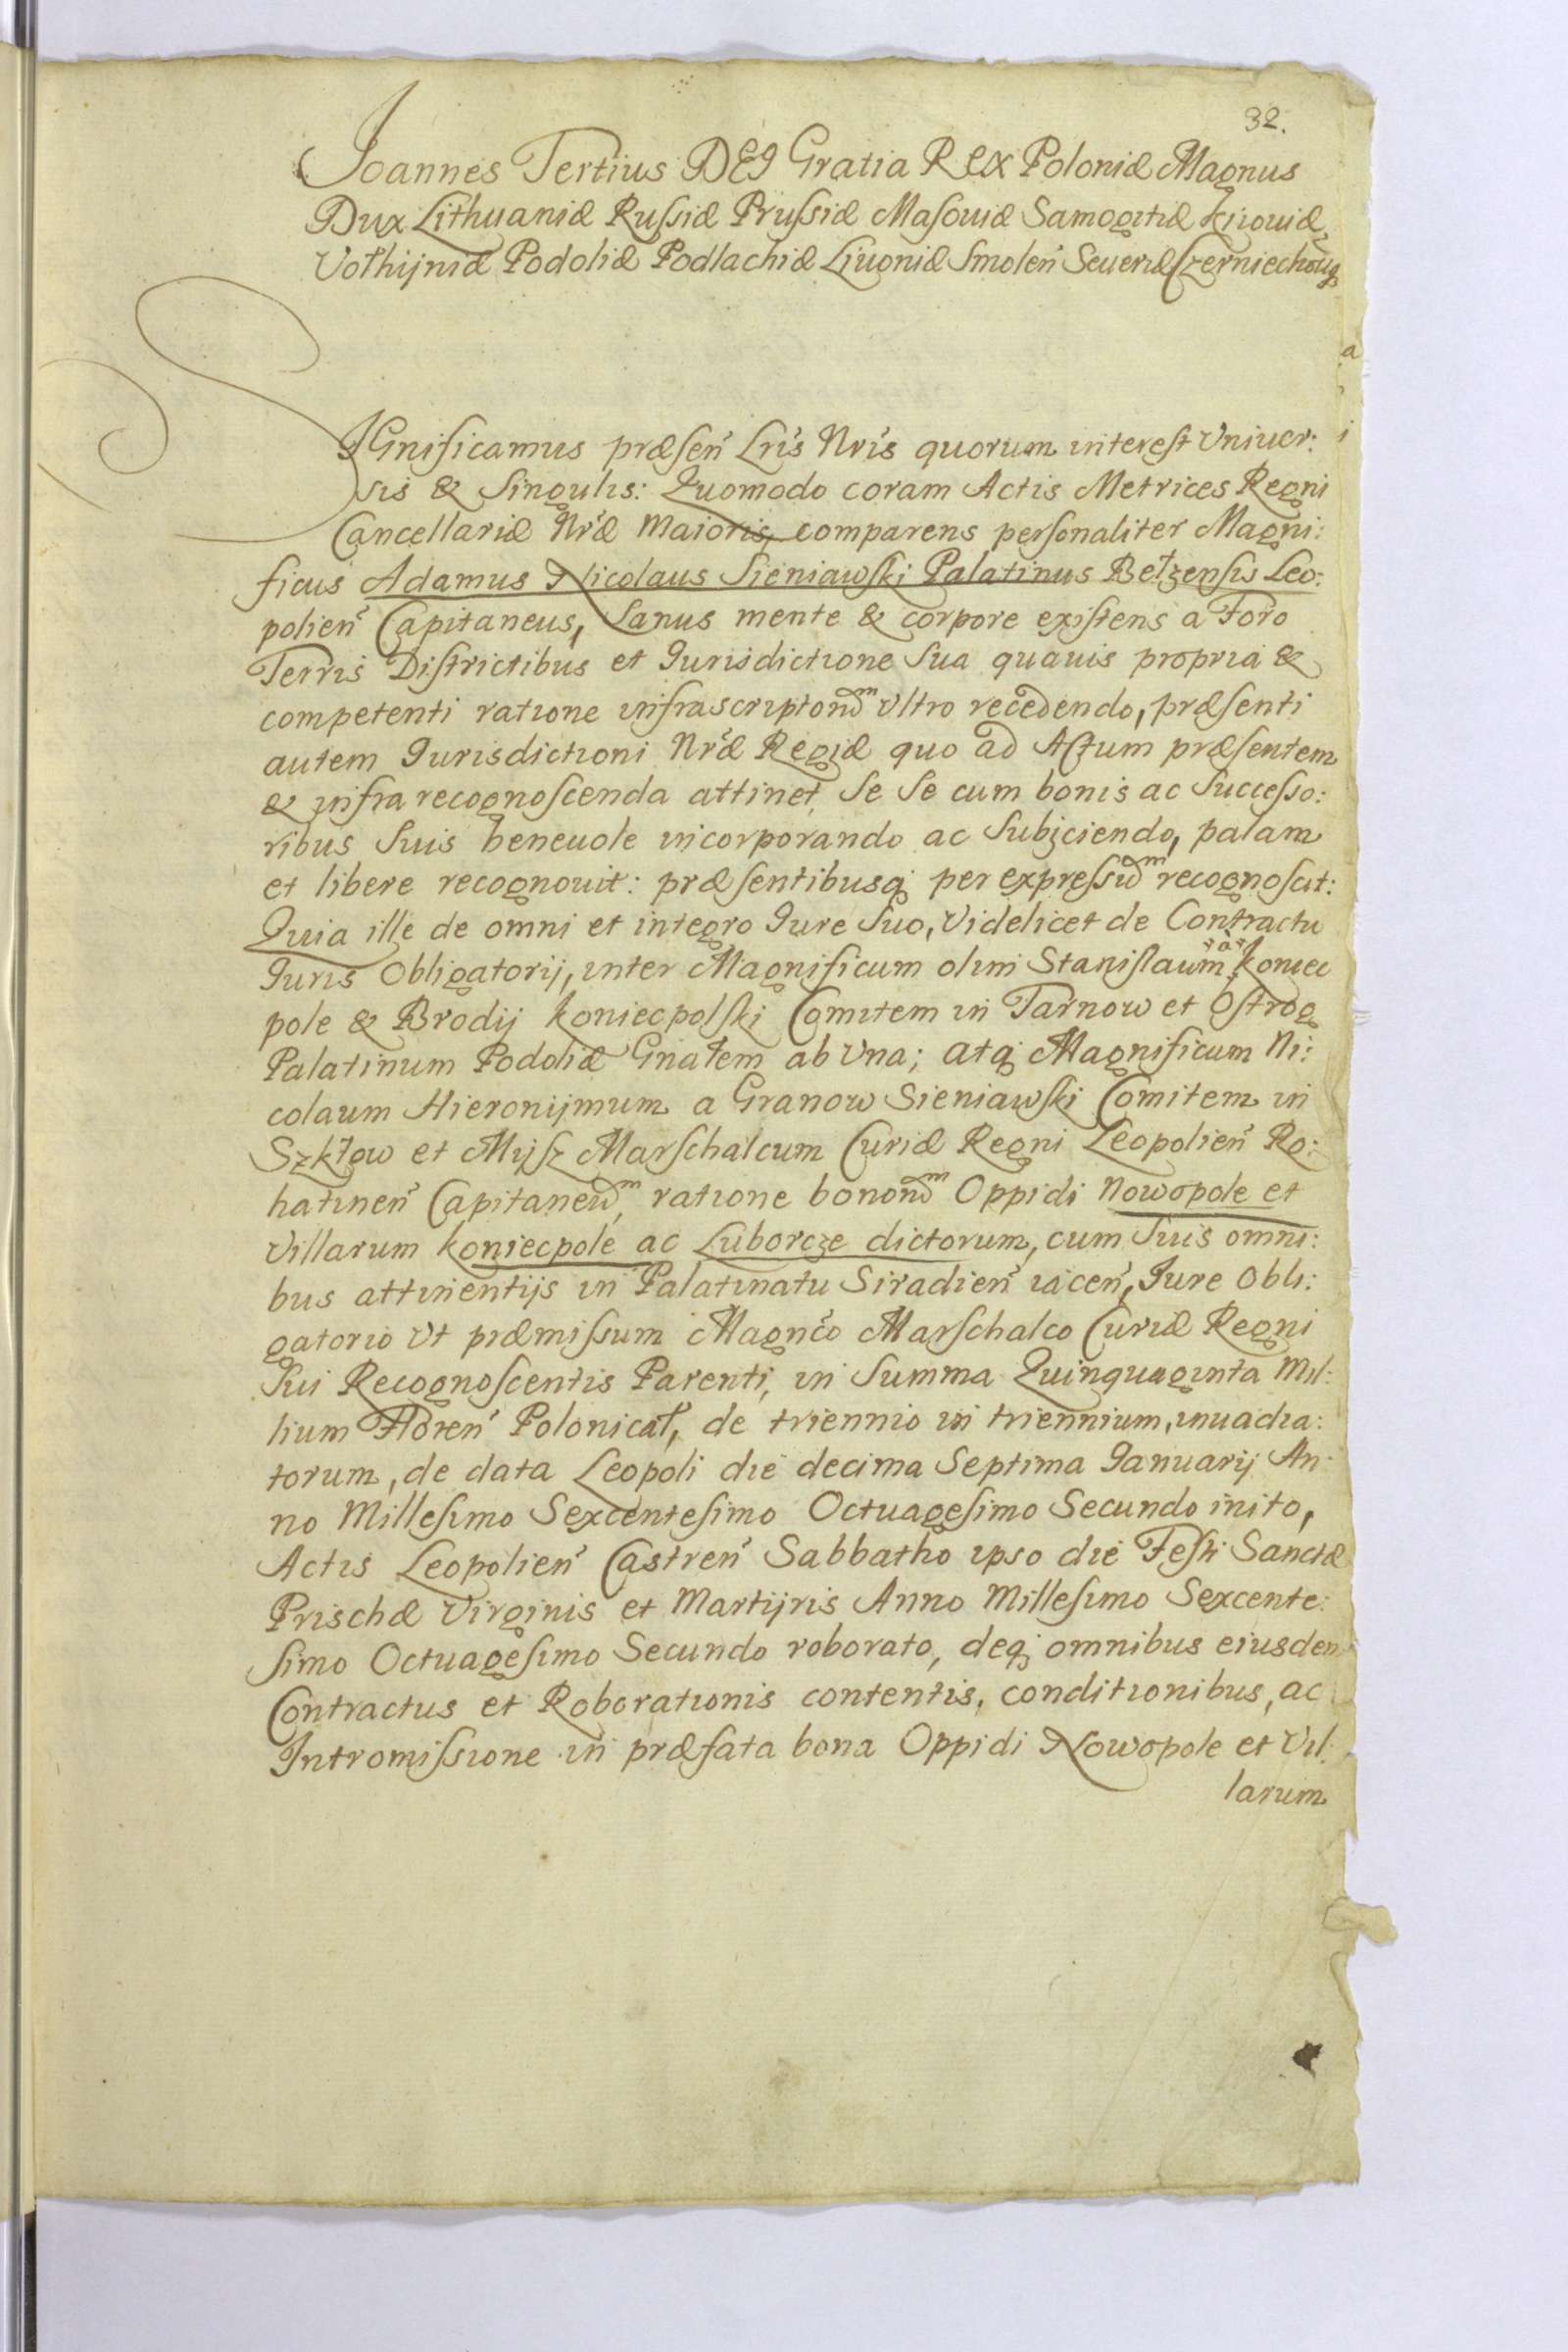 32.
Joannes Tertius DEI Gratia Rex Poloniæ Magnus
Dux Lithuaniæ Russiæ Prussiæ Masouiæ Samogitiæ Kijouiæ
Vołhijniæ Podoliæ Podlachiæ Liuoniæ Smoleń Seueriæ Czerniechouiæq
SIGnificamus præseń Lris Nris quorum interest Vniuer:
sis & Singulis: Quomodo coram Actis Metrices Regni
Cancellariæ Nræ Maioris, comparens personaliter Magni:
ficus Adamus Nicolaus Sieniawski Palatinus Bełzensis Leo:
polień Capitaneus, Sanus mente & corpore existens a Foro
Terris Districtibus et Jurisdictione Sua quauis propria &
competenti ratione infrascriptorum Vltro recedendo, præsenti
autem Jurisdictioni Nræ Regiæ quo ad Actum præsentem
& infra recognoscenda attinet, Se Se cum bonis ac Successo:
ribus Suis beneuole incorporando ac Subijciendo, palam
et libere recognouit: præsentibusq per expressum recognoscit:
Quia ille de omni et integro Jure Suo, Videlicet de Contractu
Juris Obligatorij, inter Magnificum olim Stanislaum a Koniec
pole & Brodij Koniecpolski Comitem in Tarnow et Ostrog
Palatinum Podoliæ Gnałem ab Vna; atq Magnificum Ni:
colaum Hieronijmum a Granow Sieniawski Comitem in
Szkłow et Mijsz Marschalcum Curiæ Regni Leopolień Ro:
hatineń Capitaneum, ratione bonorum Oppidi Nowopole et
Villarum Koniecpole ac Luborcze dictorum, cum Suis omni:
bus attinentijs in Palatinatu Siradień iaceń, Jure Obli:
gatorio Vt præmissum Magnco Marschalco Curiæ Regni
Sui Recognoscentis Parenti, in Summa Quinquaginta Mil:
lium Floreń Polonicał, de triennio in triennium, inuadia:
torum, de data Leopoli die decima Septima Januarij An:
no Millesimo Sexcentesimo Octuagesimo Secundo inito,
Actis Leopolień Castreń Sabbatho ipso die Festi Sanctæ
Prischæ Virginis et Martijris Anno Millesimo Sexcente:
simo Octuagesimo Secundo roborato, deq omnibus eiusdem
Contractus et Roborationis contentis, conditionibus, ac
Intromissione in præfata bona Oppidi Nowopole et Vil:
larum